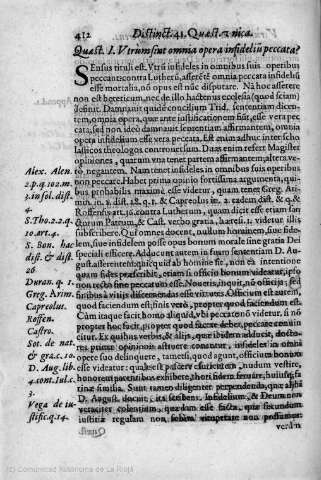 412 Distinct. 41. Quæst. vnica.
Quæst. I. Vtrum sint omnia opera infideliũ peccata?
SEnsus tituli est. Vtrũ infideles in omnibus suis operibus
peccant: contra Lutherũ, asserẽtẽ omnia peccata infidelis
esse mortalia, nõ opus est nũc disputare. Nã hoc asserere
non est hæreticum, nec de illo hactenus ecclesia (quod sciam)
Trid. sententiam dicen-
tem, omnia opera, quæ ante iustificationem fiũt, esse vera pec
cata, sed non ideò damnauit sententiam affirmantem, omnia
opera infidelium esse vera peccata. Est enim adhuc inter scho
lasticos theologos controuersum. Duas enim refert Magister
opiniones, quarum vna tenet partem affirmantem, altera ve-
rò negantem. Nam tenet infideles in omnibus suis operibus
non peccare. Habet prima opinio fortissima argumenta, qui-
bus probabilis maximè esse videtur, quam tenet Greg. Ari-
min. in 2. dist. 28. q. 1. & Capreolus in 2. eadem dist. & q. &
Roffensis art. 36. contra Lutherum, quam dicit esse etiam san
ctorum Patrum, & Cast. verbo gratia, hæresi. 1. videtur illi
subscribere. Qui omnes docent, nullum hominem, siue fide-
lem, siue infidelem posse opus bonum morale sine gratia Dei
speciali efficere. Adducunt autem in suum fauorem D. Au-
gust. asserentem quicquid ab homine fit, non ea intentione
quam fides præscribit, etiam si officio bonum videatur, ipso
non recto fine peccatum esse. Noueris, inquit, nõ officijs, sed
finibus à vitijs discernendas esse virtutes. Officium est autem,
quod faciendum est, finis verò, propter quod faciendum est.
Cùm itaque facit homo aliquid, vbi peccare nõ videtur, si nõ
propter hoc facit, propter quod facere debet, peccare conuin
citur. Ex quibus verbis, & alijs, quæ ibidem adducit, docto-
res primæ opinionis astruunt, infideles in omni
opere suo delinquere, tametsi, quod agunt, officium bonum
esse videatur: qualis est pascere esurientem, nudum vestire,
honorem parentibus exhibere, thori fidem seruare, huiusq́;
similia. Sunt tamen diligenter perpendenda, quæ alibi
D. August. docuit, ita scribens. Infidelium, & Deum non
veraciter colentium, quædam esse facta, quæ secundum
iustitiæ regulam non solùm vituperare non possumus,
verùm
Quæst
Alex. Alen.
2. p. q. 102. m.
3. in sol. dist.
4
S. Tho. 2. 2. q.
10. art. 4.
S. Bon. hac
dist. & dist.
26
Duran. q. 1.
Greg. Arim.
Capreolus.
Roffen.
Castro.
Sot. de nat.
& gra. c. 20.
D. Aug. lib.
4. cont. Iul. c.
3.
Vega de iu-
stific. q. 14.
(C) Comunidad Autónoma de La Rioja